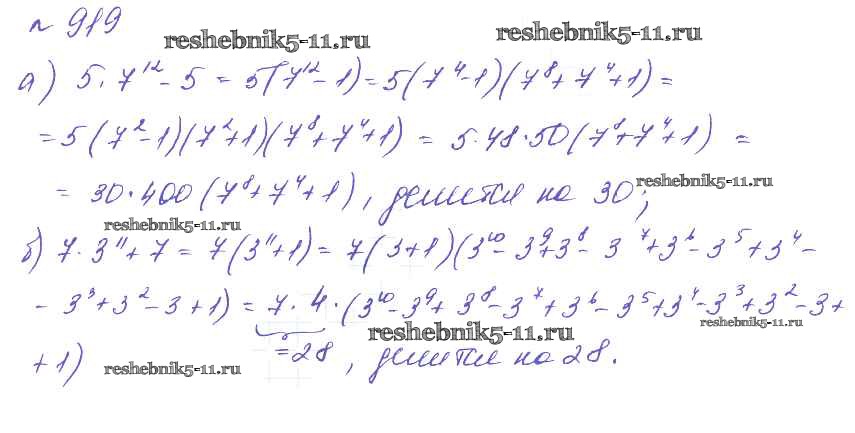 № 919
reshebnik5-11.ru
reshebnik5-11.ru
а) 5·7¹² - 5 = 5(7¹² - 1) = 5(7⁴-1)(7⁸+7⁴+1) =
= 5(7²-1)(7²+1)(7⁸+7⁴+1) = 5·48·50(7⁸+7⁴+1) =
= 30·400(7⁸+7⁴+1), делится на 30;
reshebnik5-11.ru
reshebnik5-11.ru
б) 7·3¹¹+7 = 7(3¹¹+1) = 7(3+1)(3¹⁰-3⁹+3⁸-3⁷+3⁶-3⁵+3⁴-
-3³+3²-3+1) = 7·4·(3¹⁰-3⁹+3⁸-3⁷+3⁶-3⁵+3⁴-3³+3²-3+
reshebnik5-11.ru
reshebnik5-11.ru
+1) =28, делится на 28.
reshebnik5-11.ru